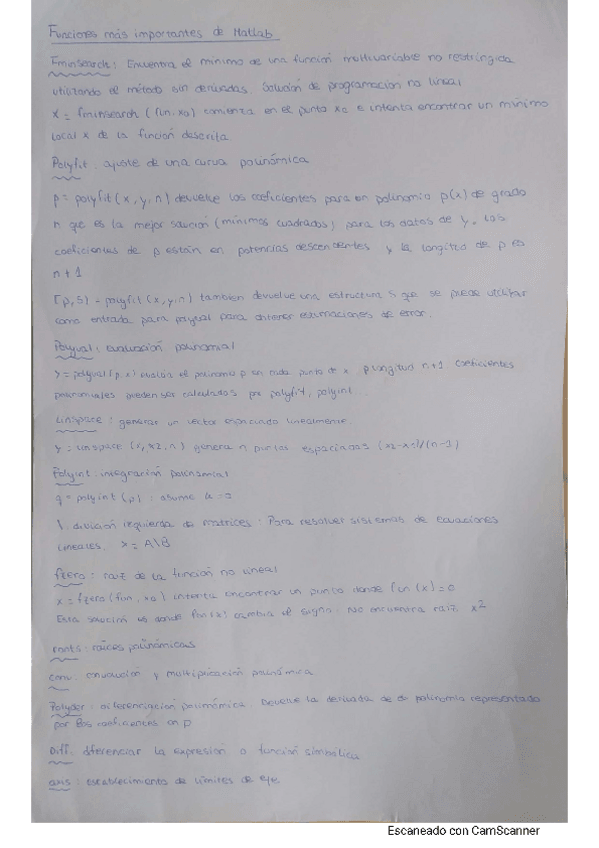 Funciones más importantes de Matlab
Fminsearch: Encuentra el mínimo de una función multivariable no restringida
utilizando el método sin derivadas. Solución de programación no lineal
X = fminsearch (fun, x0) comienza en el punto x0 e intenta encontrar un mínimo
local x de la función descrita
Polyfit: ajuste de una curva polinómica
p = polyfit (x, y, n) devuelve los coeficientes para en polinomio p(x) de grado
n que es la mejor solución (mínimos cuadrados) para los datos de y. Los
coeficientes de p están en potencias descendentes y la longitud de p es
n+1
[p, S) = polyfit (x, y, n) tambien devuelve una estructura S que se puede utilizar
como entrada para polyval para obtener estimaciones de error.
Polyval: evaluación polinomial
y = polyval (p, x) evalúa el polinomio p en cada punto de x. p longitud n+1 coeficientes
polinomiales pueden ser calculados por polyfit, polyint
Linspace: generar un vector espaciado linealmente
y = linspace (x, x2, n) genera n puntos espaciados (x2-x1)/(n-1)
Polyint: integración polinomial
q = polyint (p) : asume k = 0
\ división izquierda de matrices: Para resolver sistemas de ecuaciones
lineales. x = A\B
fzero: raiz de la función no lineal
x = fzero (fun, x0) intenta encontrar un punto donde fun (x) = 0
Esta solución es donde fun(x) cambia el signo. No encuentra raiz x^2
roots: raíces polinómicas
conv: convolución y multiplicación polinómica
Polyder: diferenciación polinómica. Devuelve la derivada de polinomio representado
por los coeficientes en p
Diff: diferenciar la expresión o función simbólica
axis: establecimiento de límites de eje
Escaneado con CamScanner